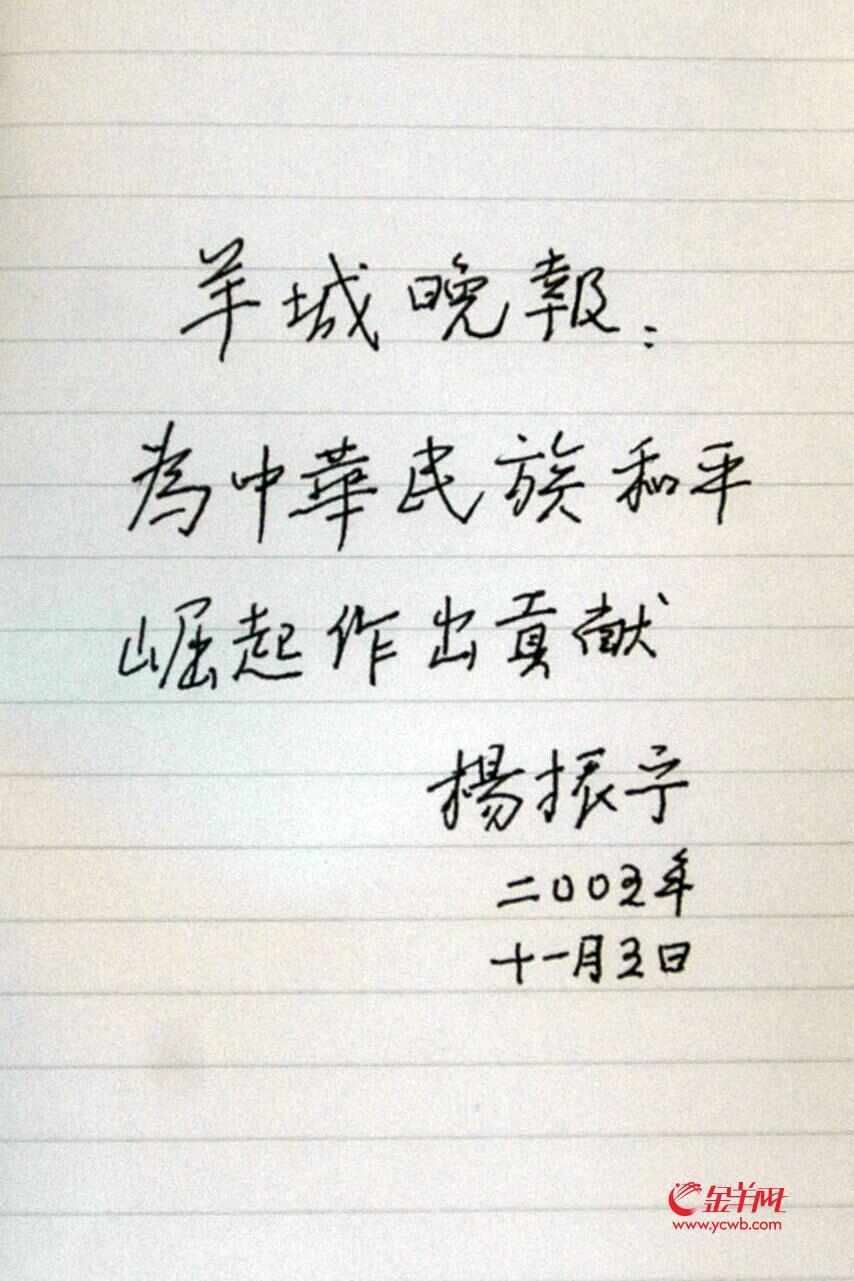 羊城晚報：
為中華民族和平
崛起作出貢献
楊振宁
二〇〇五年
十一月五日
金羊网
www.ycwb.com